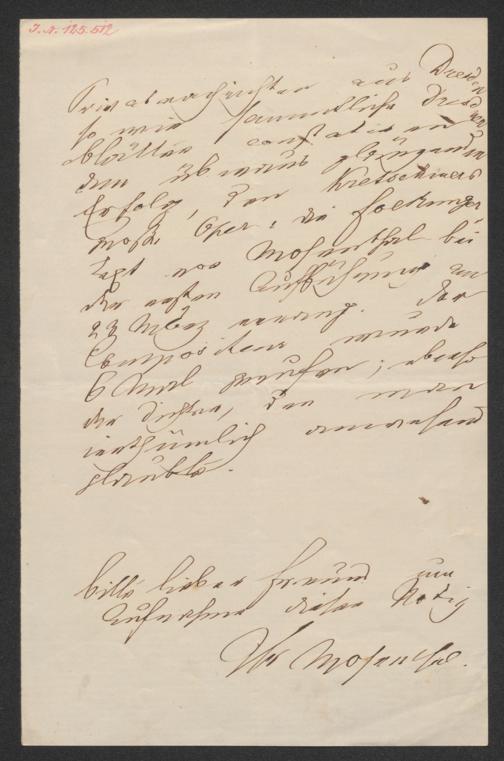 J.N. 125.512
Privatnachrichten aus Dresden
so wie sämmtliche Dresdner
Blätter constatiren
den überaus glänzenden
Erfolg, den Kretschmers
Oper: die Folkunger
Text von Mosenthal bei
der ersten Aufführung am
23 März errang. Der
Componist wurde
6 Mal gerufen; ebenso
der Dichter, den man
irrthümlich anwesend
glaubte.
bitte lieber Freund um
Aufnahme dieser Notiz
Ihr Mosenthal.